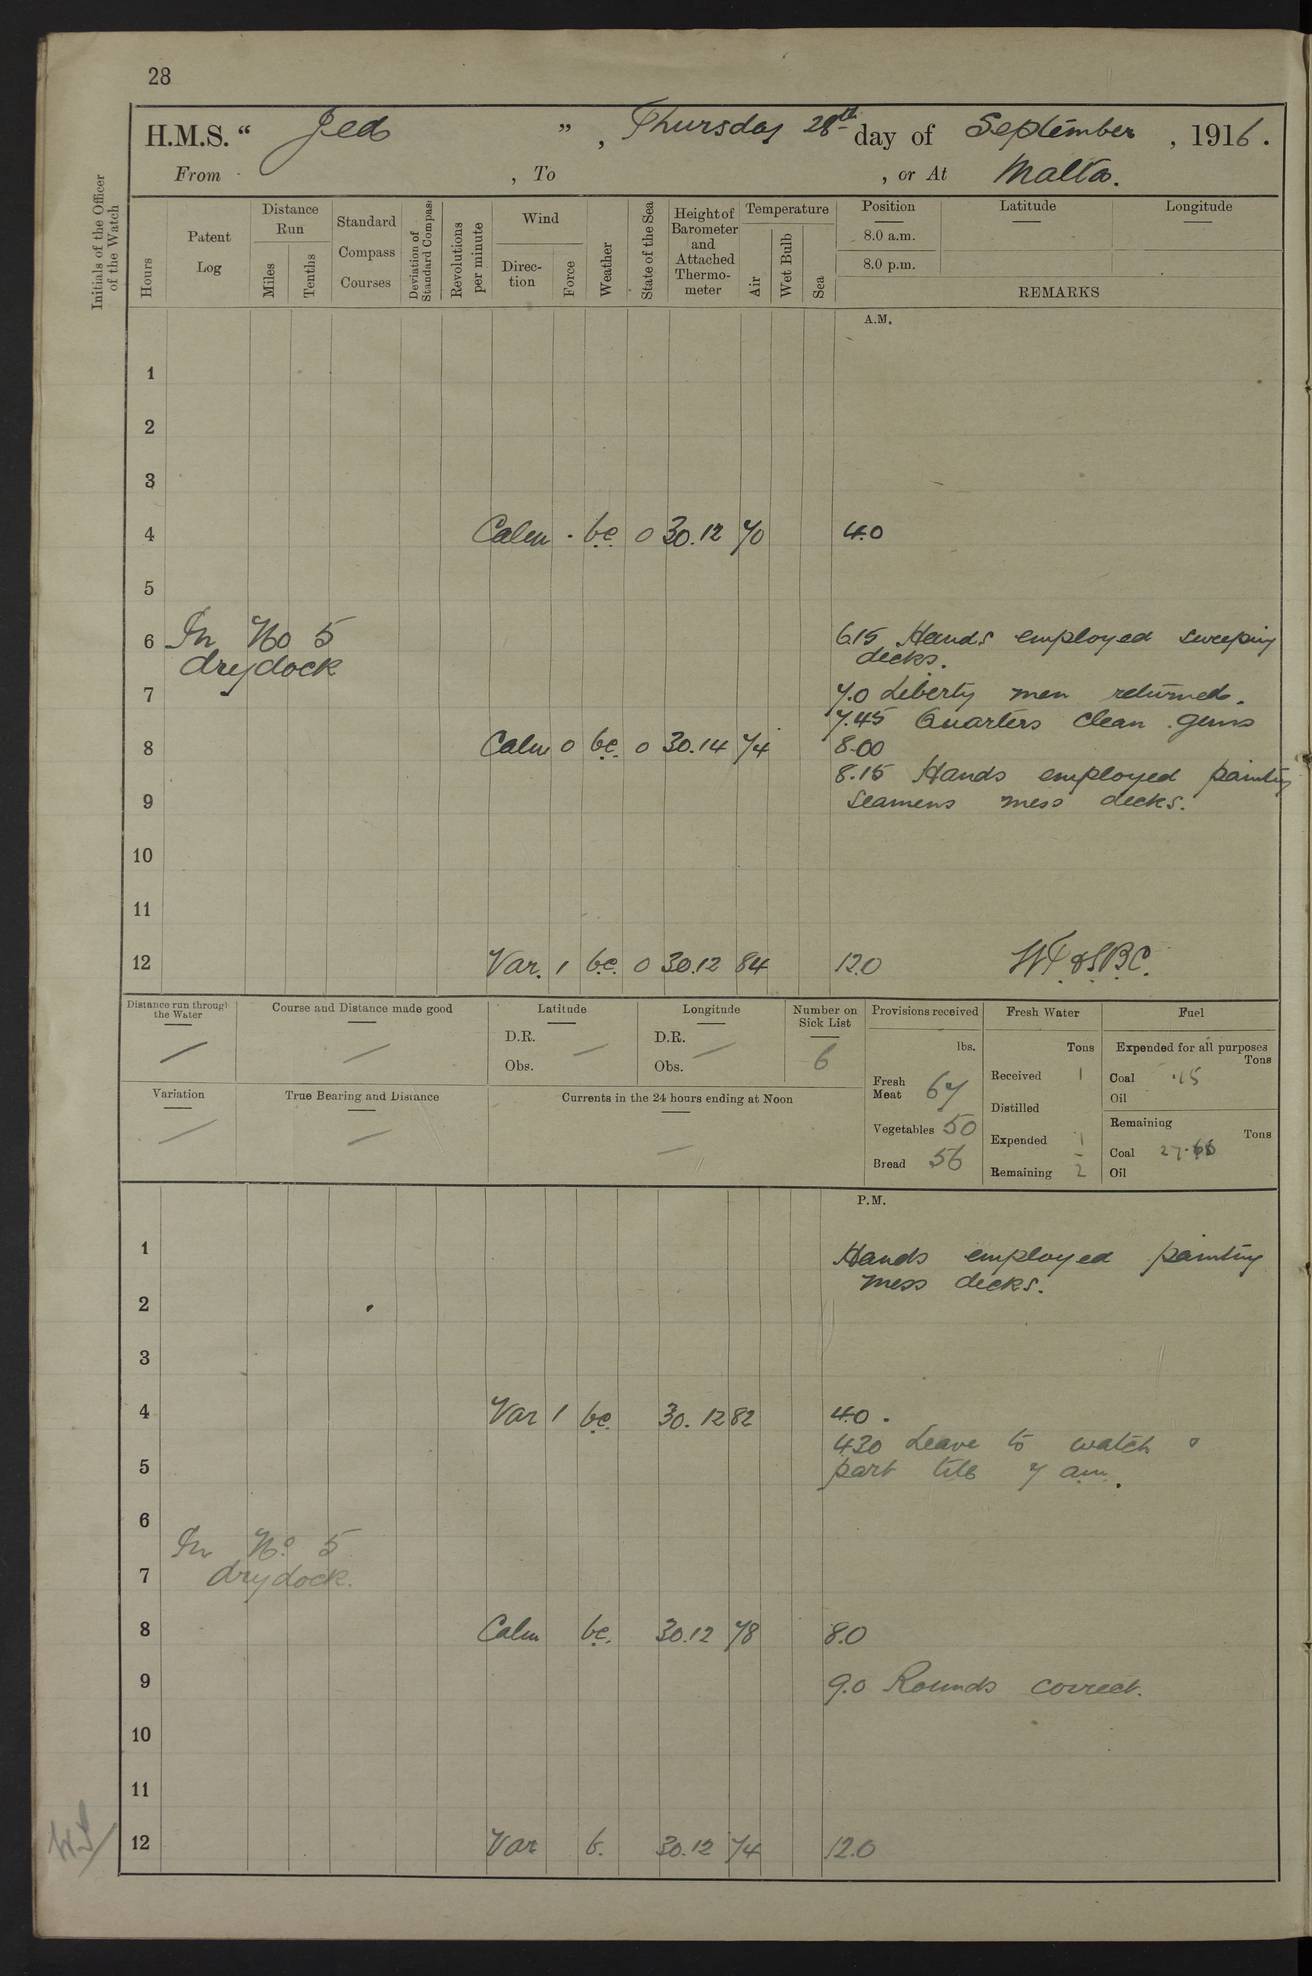 28
H.M.S. “ Jed ” , Thursday 28th day of September , 1916.
From , To , or At Malta.
Initials of the Officer of the Watch
Hours
Patent Log
Distance Run
Miles
Tenths
Standard Compass Courses
Deviation of Standard Compass
Revolutions per minute
Wind
Direction
Force
Weather
State of the Sea
Height of Barometer and Attached Thermometer
Temperature
Air
Wet Bulb
Sea
Position Latitude Longitude
8.0 a.m.
8.0 p.m.
REMARKS
A.M.
1
2
3
4 Calm . bc. 0 30.12 70 4.0
5
6 In No 5 6.15 Hands employed sweeping
drydock decks.
7 7.0 Liberty men returned.
7.45 Quarters clean guns
8 Calm 0 bc. 0 30.14 74 8.00
8.15 Hands employed painting
9 seamens mess decks.
10
11
12 Var. 1 bc. 0 30.12 84 12.0
Distance run through the Water
Course and Distance made good
Latitude
D.R.
Obs.
Longitude
D.R.
Obs.
Number on Sick List
6
Variation
True Bearing and Distance
Currents in the 24 hours ending at Noon
Provisions received
lbs.
Fresh Meat 67
Vegetables 50
Bread 56
Fresh Water
Tons
Received 1
Distilled
Expended 1
Remaining 2
Fuel
Expended for all purposes
Tons
Coal .15
Oil
Remaining
Tons
Coal
Oil
P.M.
1 Hands employed painting
mess decks.
2
3
4 Var 1 bc. 30.12 82 4.0.
4.30 Leave to watch &
5 part till 7 am.
6
In No. 5
7 drydock.
8 Calm bc. 30.12 78 8.0
9 9.0 Rounds correct.
10
11
12 Var b. 30.12 74 12.0